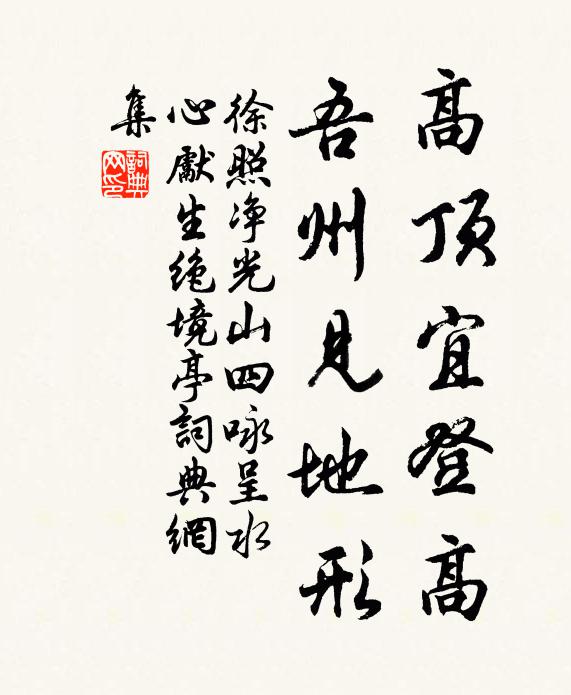 高顶宜登高
吾州見地形
徐照净光山四咏呈水
心獻生绝境亭詞典網
集
詞典网印